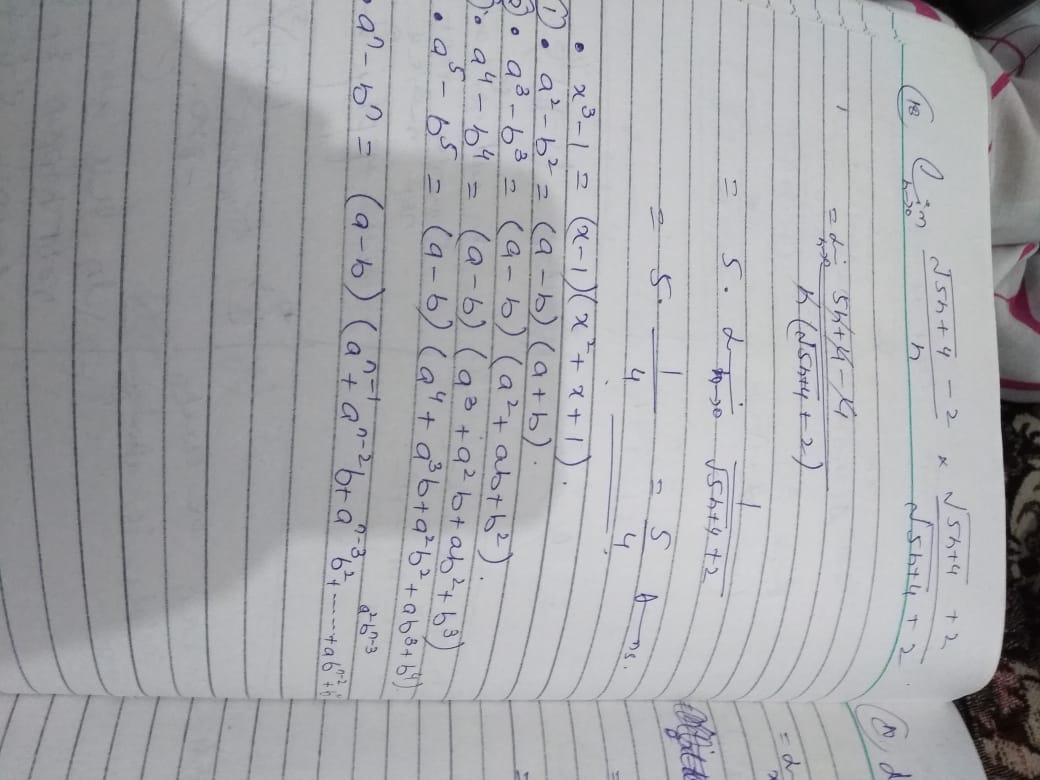 (18) lim h→0 √5h+4 - 2 / h × √5h+4 + 2 / √5h+4 + 2
= lim h→0 5h+4-4 / h(√5h+4 + 2)
= 5. lim h→0 1 / √5h+4 + 2
= 5. 1/4 = 5/4 Ans.
• x³-1 = (x-1)(x²+x+1).
1) • a²-b² = (a-b)(a+b).
2) • a³-b³ = (a-b)(a²+ab+b²).
• a⁴-b⁴ = (a-b)(a³+a²b+ab²+b³)
• a⁵-b⁵ = (a-b)(a⁴+a³b+a²b²+ab³+b⁴)
a²bⁿ⁻³
• aⁿ-bⁿ = (a-b)(aⁿ⁻¹+aⁿ⁻²b+aⁿ⁻³b²+.....+abⁿ⁻²+